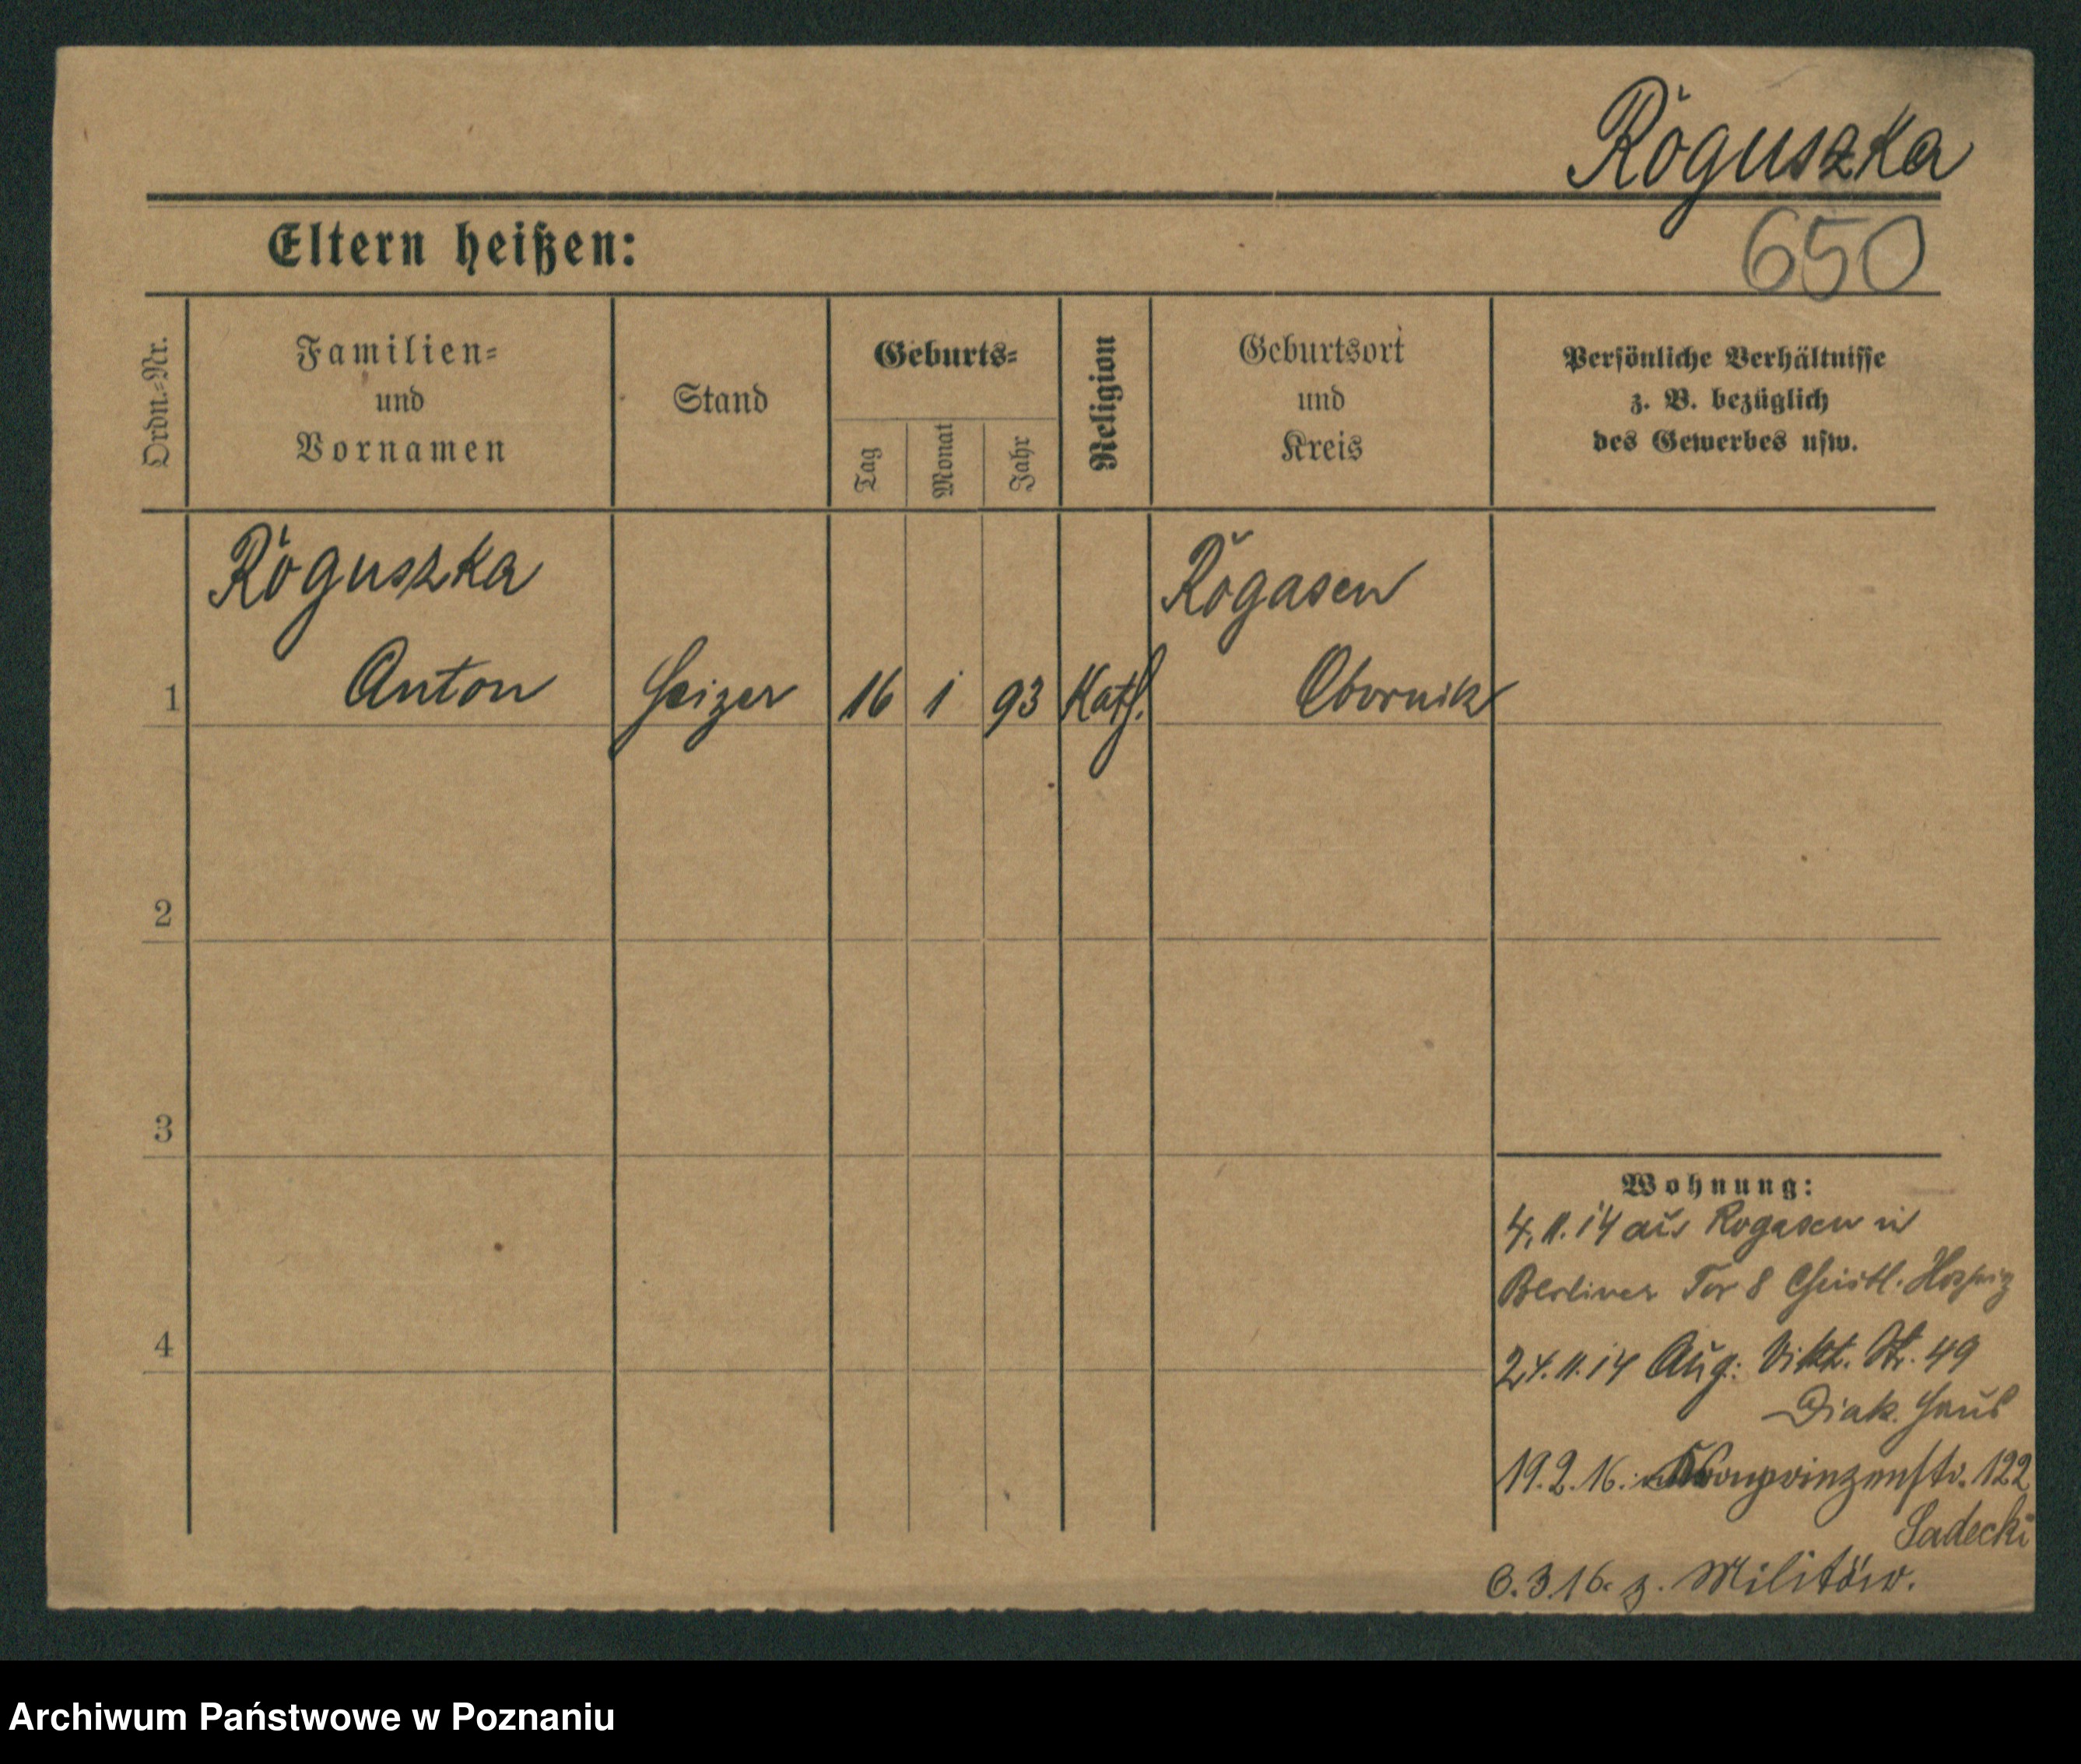 Roguszka
650
Eltern heißen:
Ordn.=Nr.
Familien=
und
Vornamen
Stand
Geburts=
Tag
Monat
Jahr
Religion
Geburtsort
und
Kreis
Persönliche Verhältnisse
z. B. bezüglich
des Gewerbes usw.
Roguszka
Rogasen
1 Anton Heizer 16 1 93 Kath. Obornik
2
3
Wohnung:
4.11.14 aus Rogasen in
Berliner Tor 8 Christl. Hospiz
4
24.11.14 Aug. Vikt. Str. 49
Diak. Haus
19.2.16. Kronprinzenstr. 122
Sadecki
6.3.16. z. Militär.
Archiwum Państwowe w Poznaniu